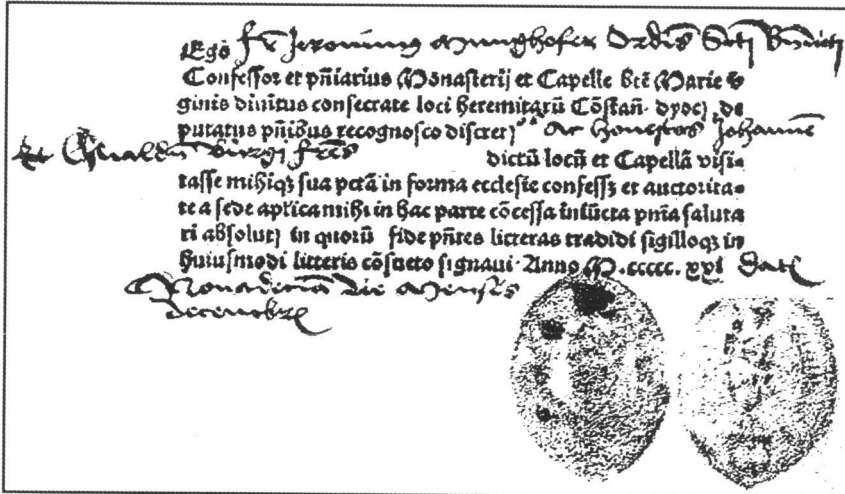 Ego fr Jeronimus Munghofer Ordis Scti Bndicti
Confessor et pñiarius Monasterij et Capelle btē Marie v
ginis diuitus consecrate loci heremitarū Cōstañ. dyocꝫ de
putatus pñibus recognosco discretꝫ ac honestos Johannē
et dictū locū et Capellā visi-
tasse mihiqꝫ sua pctā in forma ecclesie confessꝫ et auctorita-
te a sede aplica mihi in hac parte cōcessa iniūcta pnīa saluta
ri absolutꝫ in quorū fide pñtes litteras tradidi sigilloqꝫ in
huiusmodi litteris cōsueto signaui. Anno M.ccccc.xxi Datꝫ
die Mensis
decembrꝫ